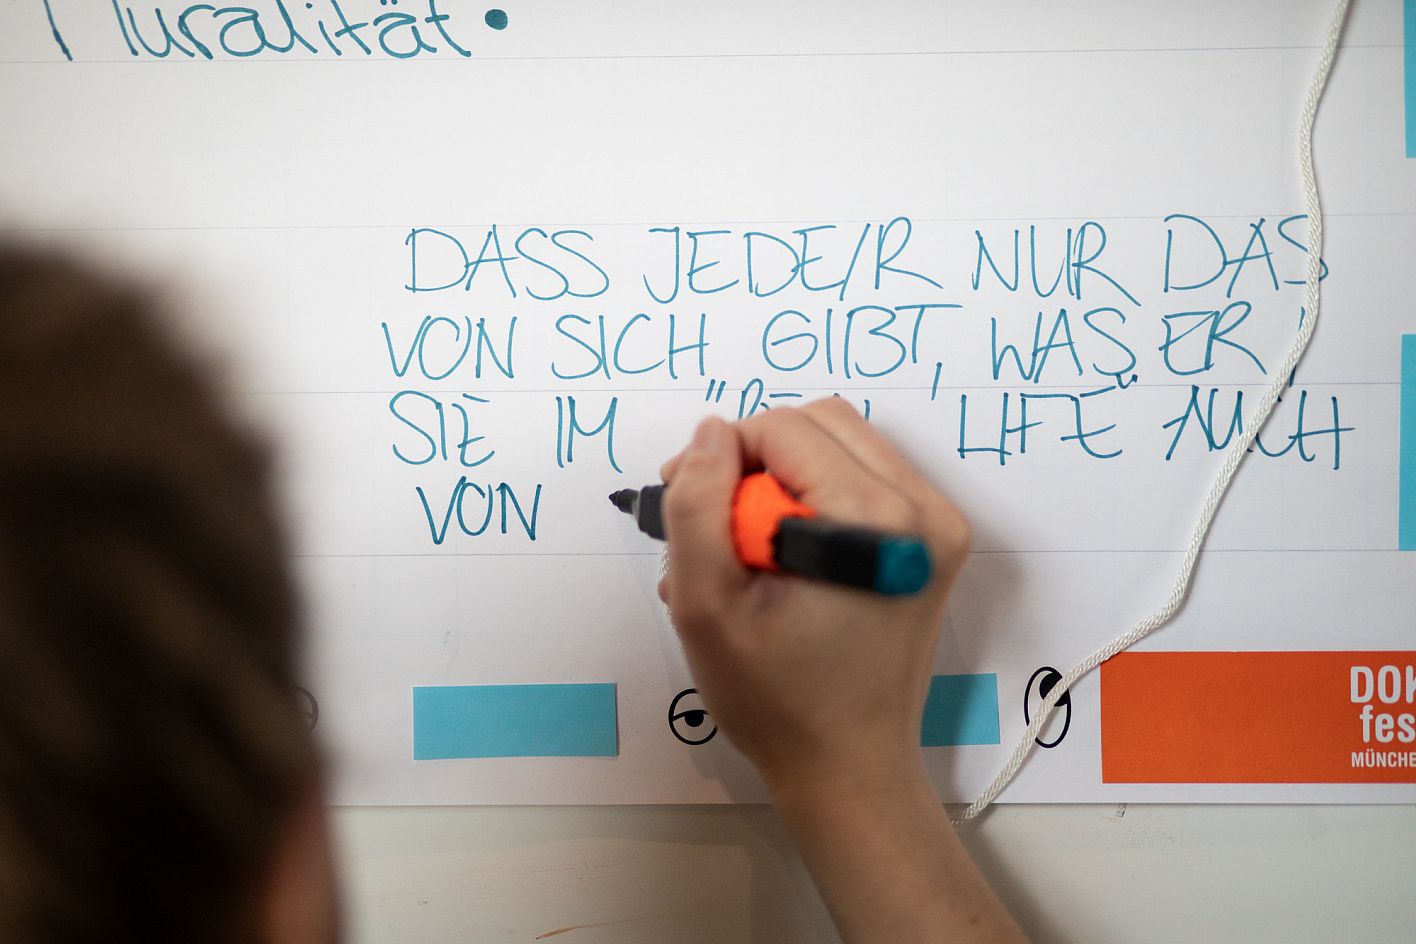 Pluralität.
DASS JEDE/R NUR DAS
VON SICH GIBT, WAS ER/
SIE IM "REAL LIFE" AUCH
VON
DOK
fes
MÜNCHE